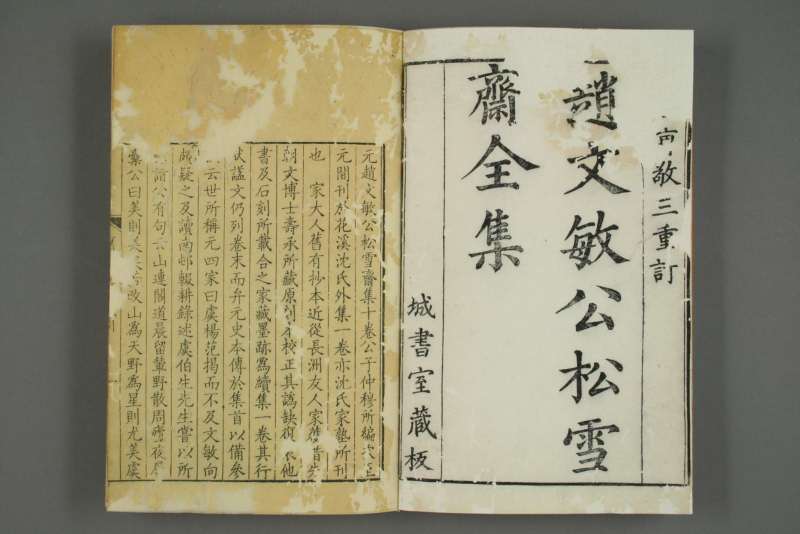 敬三重訂
趙文敏公松雪
齋全集
城書室藏板
元趙文敏公松雪齋集十卷公子仲穆所編次至
元間刊於花溪沈氏外集一卷亦沈氏家塾所刊
也 家大人舊有抄本近從長洲友人家舊昔先
朝文博士壽承所藏原刻校正其譌缺復他
書及石刻所載合之家藏墨跡為續集一卷其行
狀謚文仍列卷末而弁元史本傳於集首以備參
云世所稱元四家曰虞楊范揭而不及文敏向
頗疑之及讀南邨輟耕錄述虞伯生先生嘗以所
詩公有句云山連閣道晨留輦野散周廬夜
橐公曰美則美矣若改山為天野為星則尤美虞